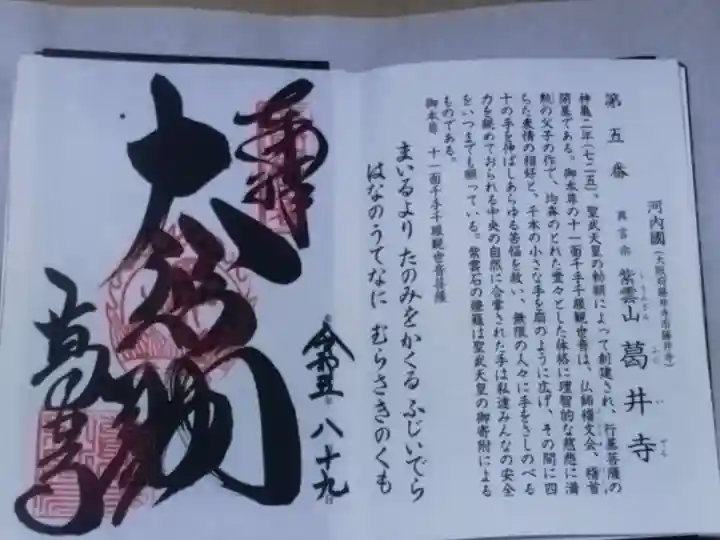 第五番
河内國（大阪府藤井寺市藤井寺）
真言宗 紫雲山 葛井寺
しうんざん ふじ い でら
神亀二年（七二五）、聖武天皇の勅願によって創建され、行基菩薩の
開基である。御本尊の十一面千手千眼観世音は、仏師稽文会、稽首
勲の父子の作で、均斉のとれた堂々とした体格に理智的な慈悲に満
ちた表情の相好と、千本の小さな手を扇のように広げ、その間に四
十の手を伸ばしあらゆる苦悩を救い、無限の人々に手をさしのべる
力を眺めておられる中央の自然に合掌された手は私達みんなの安全
をいつまでも願っている。紫雲石の燈籠は聖武天皇の御寄附による
ものである。
御本尊 十一面千手千眼観世音菩薩
まいるより たのみをかくる ふじいでら
はなのうてなに むらさきのくも
奉拝
大悲閣
令和五 八 十九
葛井寺